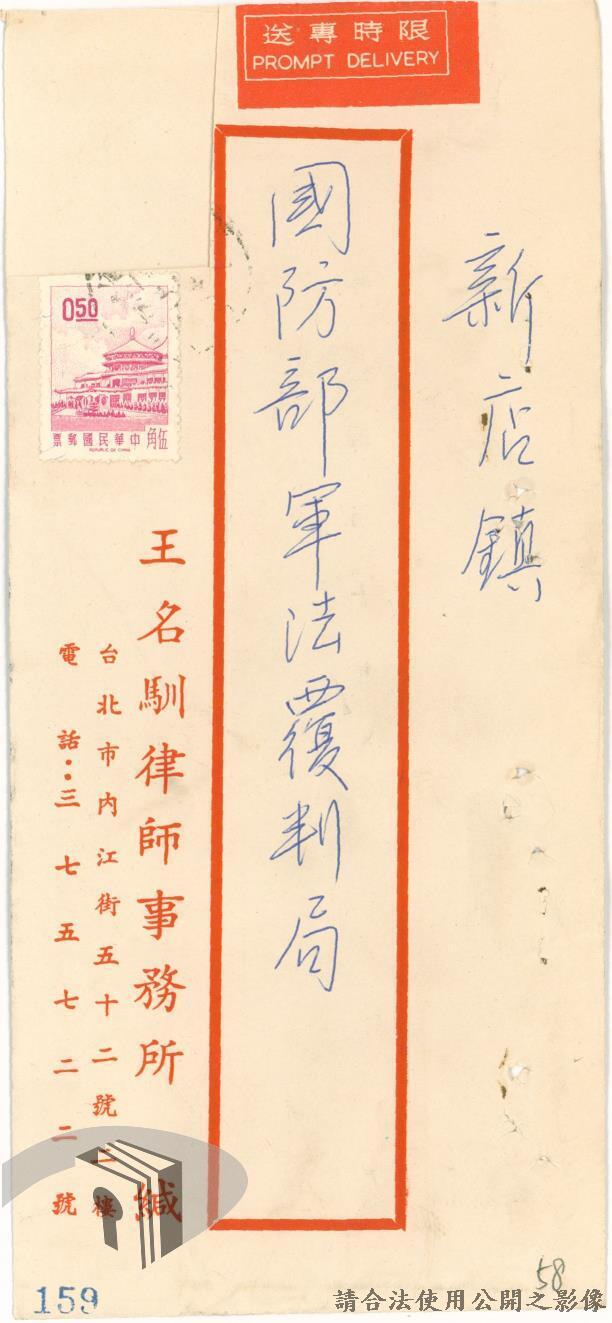 限時專送
PROMPT DELIVERY
新店鎮
國防部軍法覆判局
0.50
中華民國郵票
伍角
REPUBLIC OF CHINA
王名馴律師事務所 緘
台北市内江街五十二號二樓
電話：三七五七二二號
159
58
請合法使用公開之影像